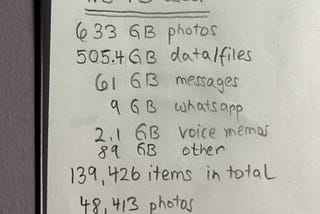 633 GB photos
505.4 GB data/files
61 GB messages
9 GB whatsapp
2.1 GB voice memos
89 GB other
139,426 items in total
48,413 photos